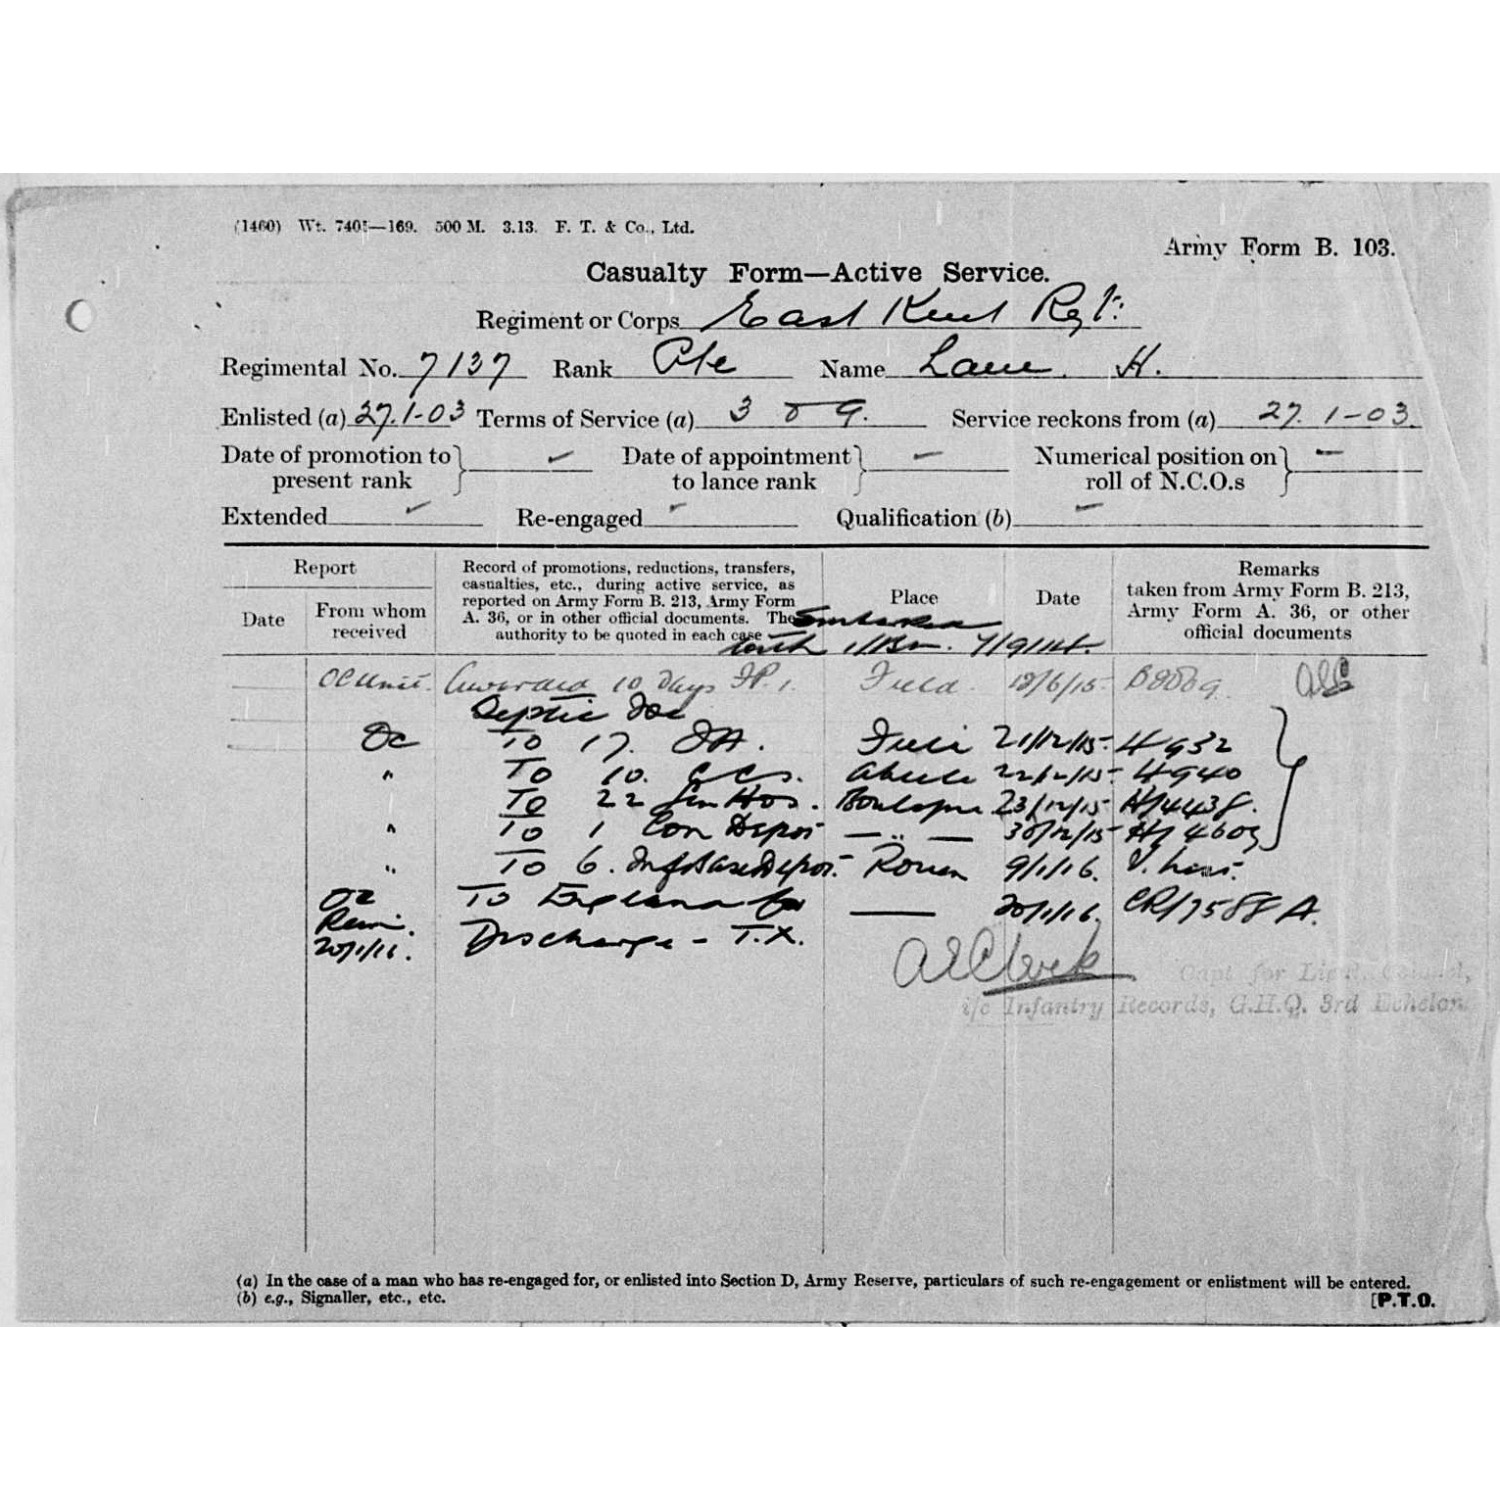 (1460) Wt. 7405—169. 500 M. 3.13. F. T. & Co., Ltd.
Army Form B. 103.
Casualty Form—Active Service.
Regiment or Corps East Kent Regt:
Regimental No. 7137 Rank Pte Name Lane. H.
Enlisted (a) 27.1-03 Terms of Service (a) 3 & 9. Service reckons from (a) 27. 1-03.
Date of promotion to present rank } Date of appointment to lance rank } Numerical position on roll of N.C.O.s }
Extended Re-engaged Qualification (b)
Report
Date
From whom received
Record of promotions, reductions, transfers,
casualties, etc., during active service, as
reported on Army Form B. 213, Army Form
A. 36, or in other official documents. The
authority to be quoted in each case
Place
Date
Remarks
taken from Army Form B. 213,
Army Form A. 36, or other
official documents
Embarked
with 1/Bn. 7/9/14.
OC Unit. Awarded 10 Days FP. 1. Field. 18/6/15
Septic
OC To 17. FA. 21/12/15. H932
" To 10. CCS. Abeele 22/12/15. H940
To 22 Gen Hos. Boulogne 23/12/15 H/4438.
" To 1 Con Depot — " — 30/12/15
" To 6. Inf Base Depot. Rouen 9/1/16.
To England for — 20/1/16. CR/7588 A.
20/1/16. Discharge - T.X.
Capt for Lieut. Colonel,
i/c Infantry Records, G.H.Q. 3rd Echelon
(a) In the case of a man who has re-engaged for, or enlisted into Section D, Army Reserve, particulars of such re-engagement or enlistment will be entered.
(b) e.g., Signaller, etc., etc.
[P.T.O.